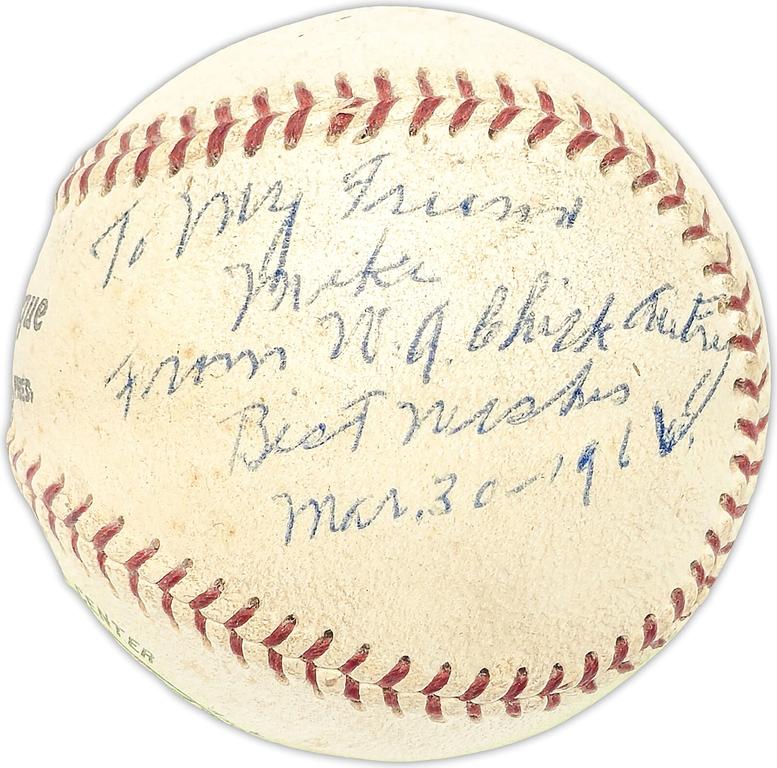 To My Friend
Mike
From W. A. Chick Autrey
Best Wishes
Mar. 30-1966.
ue
ENTER